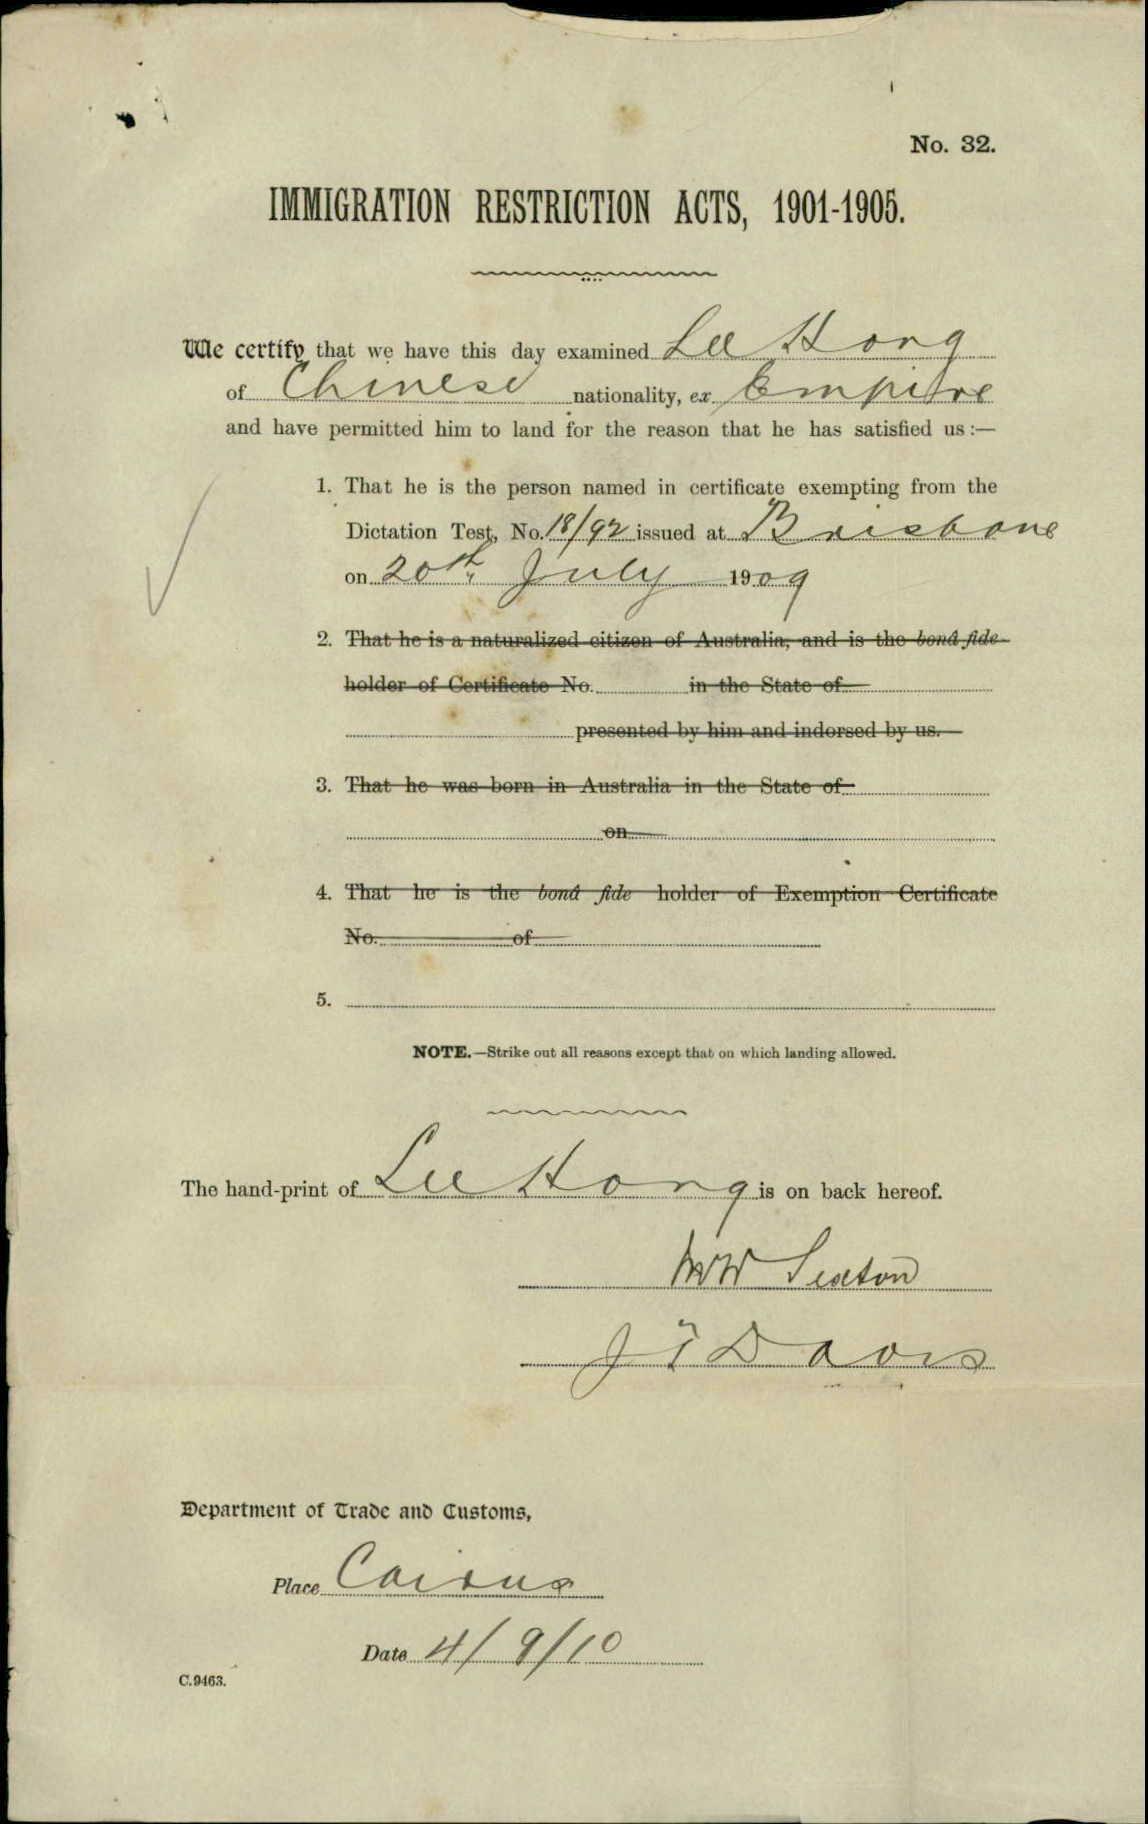 No. 32.
IMMIGRATION RESTRICTION ACTS, 1901-1905.
We certify that we have this day examined Lee Hong
of Chinese nationality, ex Empire
and have permitted him to land for the reason that he has satisfied us :—
1. That he is the person named in certificate exempting from the
Dictation Test, No. 18/92 issued at Brisbane
on 20th July 1909
2. That he is a naturalized citizen of Australia, and is the bonâ fide
holder of Certificate No. in the State of
presented by him and indorsed by us.
3. That he was born in Australia in the State of
on
4. That he is the bonâ fide holder of Exemption Certificate
No. of
5.
NOTE.—Strike out all reasons except that on which landing allowed.
The hand-print of Lee Hong is on back hereof.
Sexton
Davis
Department of Trade and Customs,
Place Cairns
Date 4/9/10
C.9463.